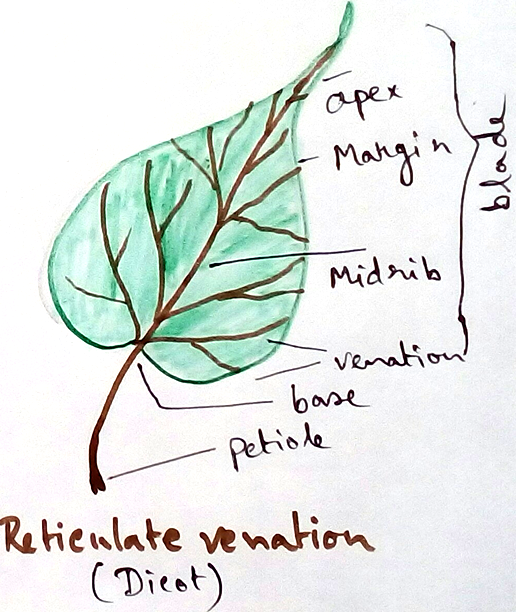 apex
Margin
blade
Midrib
venation
base
Petiole
Reticulate venation
(Dicot)